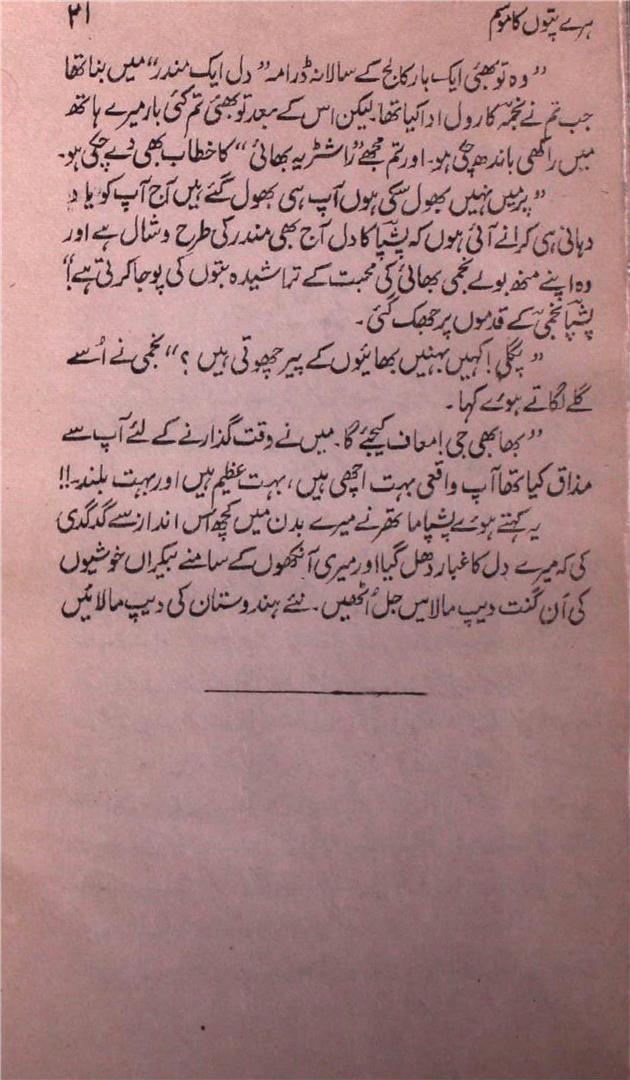 ہرے پتوں کا موسم
۲۱
”وہ تو بھئی ایک بار کالج کے سالانہ ڈرامہ ”دل ایک مندر“ میں بنا تھا
جب تم نے نجمہ کا رول ادا کیا تھا۔ لیکن اس کے بعد تو بھئی تم کئی بار میرے ہاتھ
میں راکھی باندھ چکی ہو۔ اور تم مجھے ”راشٹریہ بھائی“ کا خطاب بھی دے چکی ہو۔
”پر میں نہیں بھول سکی ہوں آپ ہی بھول گئے ہیں آج آپ کو یاد
دہانی ہی کرانے آئی ہوں کہ پشپا کا دل آج بھی مندر کی طرح وشال ہے اور
وہ اپنے منھ بولے نجمی بھائی کی محبت کے تراشیدہ بتوں کی پوجا کرتی ہے!“
پشپا نجمی کے قدموں پر جھک گئی۔
”پگلی! کہیں بہنیں بھائیوں کے پیر چھوتی ہیں ؟“ نجمی نے اُسے
گلے لگاتے ہوئے کہا۔
”بھابھی جی! معاف کیجئے گا۔ میں نے وقت گذارنے کے لئے آپ سے
مذاق کیا تھا آپ واقعی بہت اچھی ہیں، بہت عظیم ہیں اور بہت بلند۔!!
یہ کہتے ہوئے پشپا ماتھر نے میرے بدن میں کچھ اس انداز سے گدگدی
کی کہ میرے دل کا غبار دھل گیا اور میری آنکھوں کے سامنے بیکراں خوشیوں
کی اَن گنت دیپ مالائیں جل اُٹھیں۔ نئے ہندوستان کی دیپ مالائیں